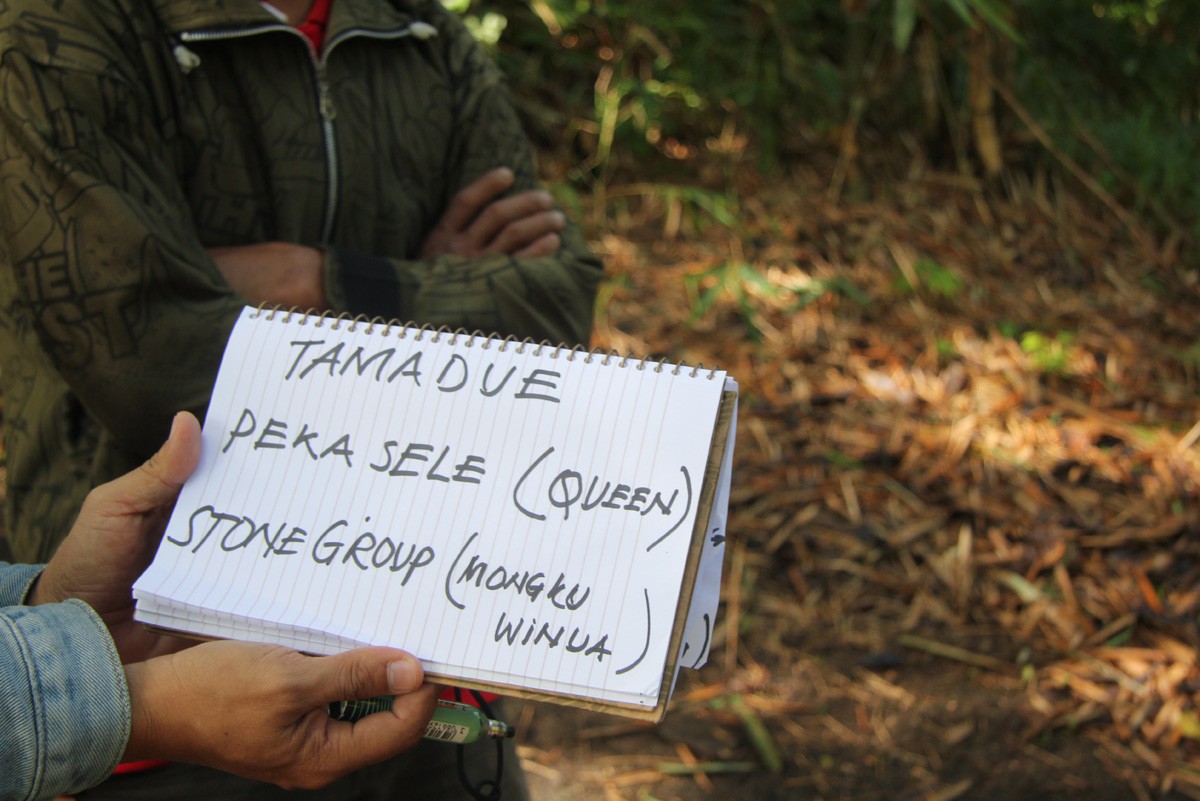 TAMADUE
PEKA SELE (QUEEN)
STONE GROUP (MONGKU
WINUA)